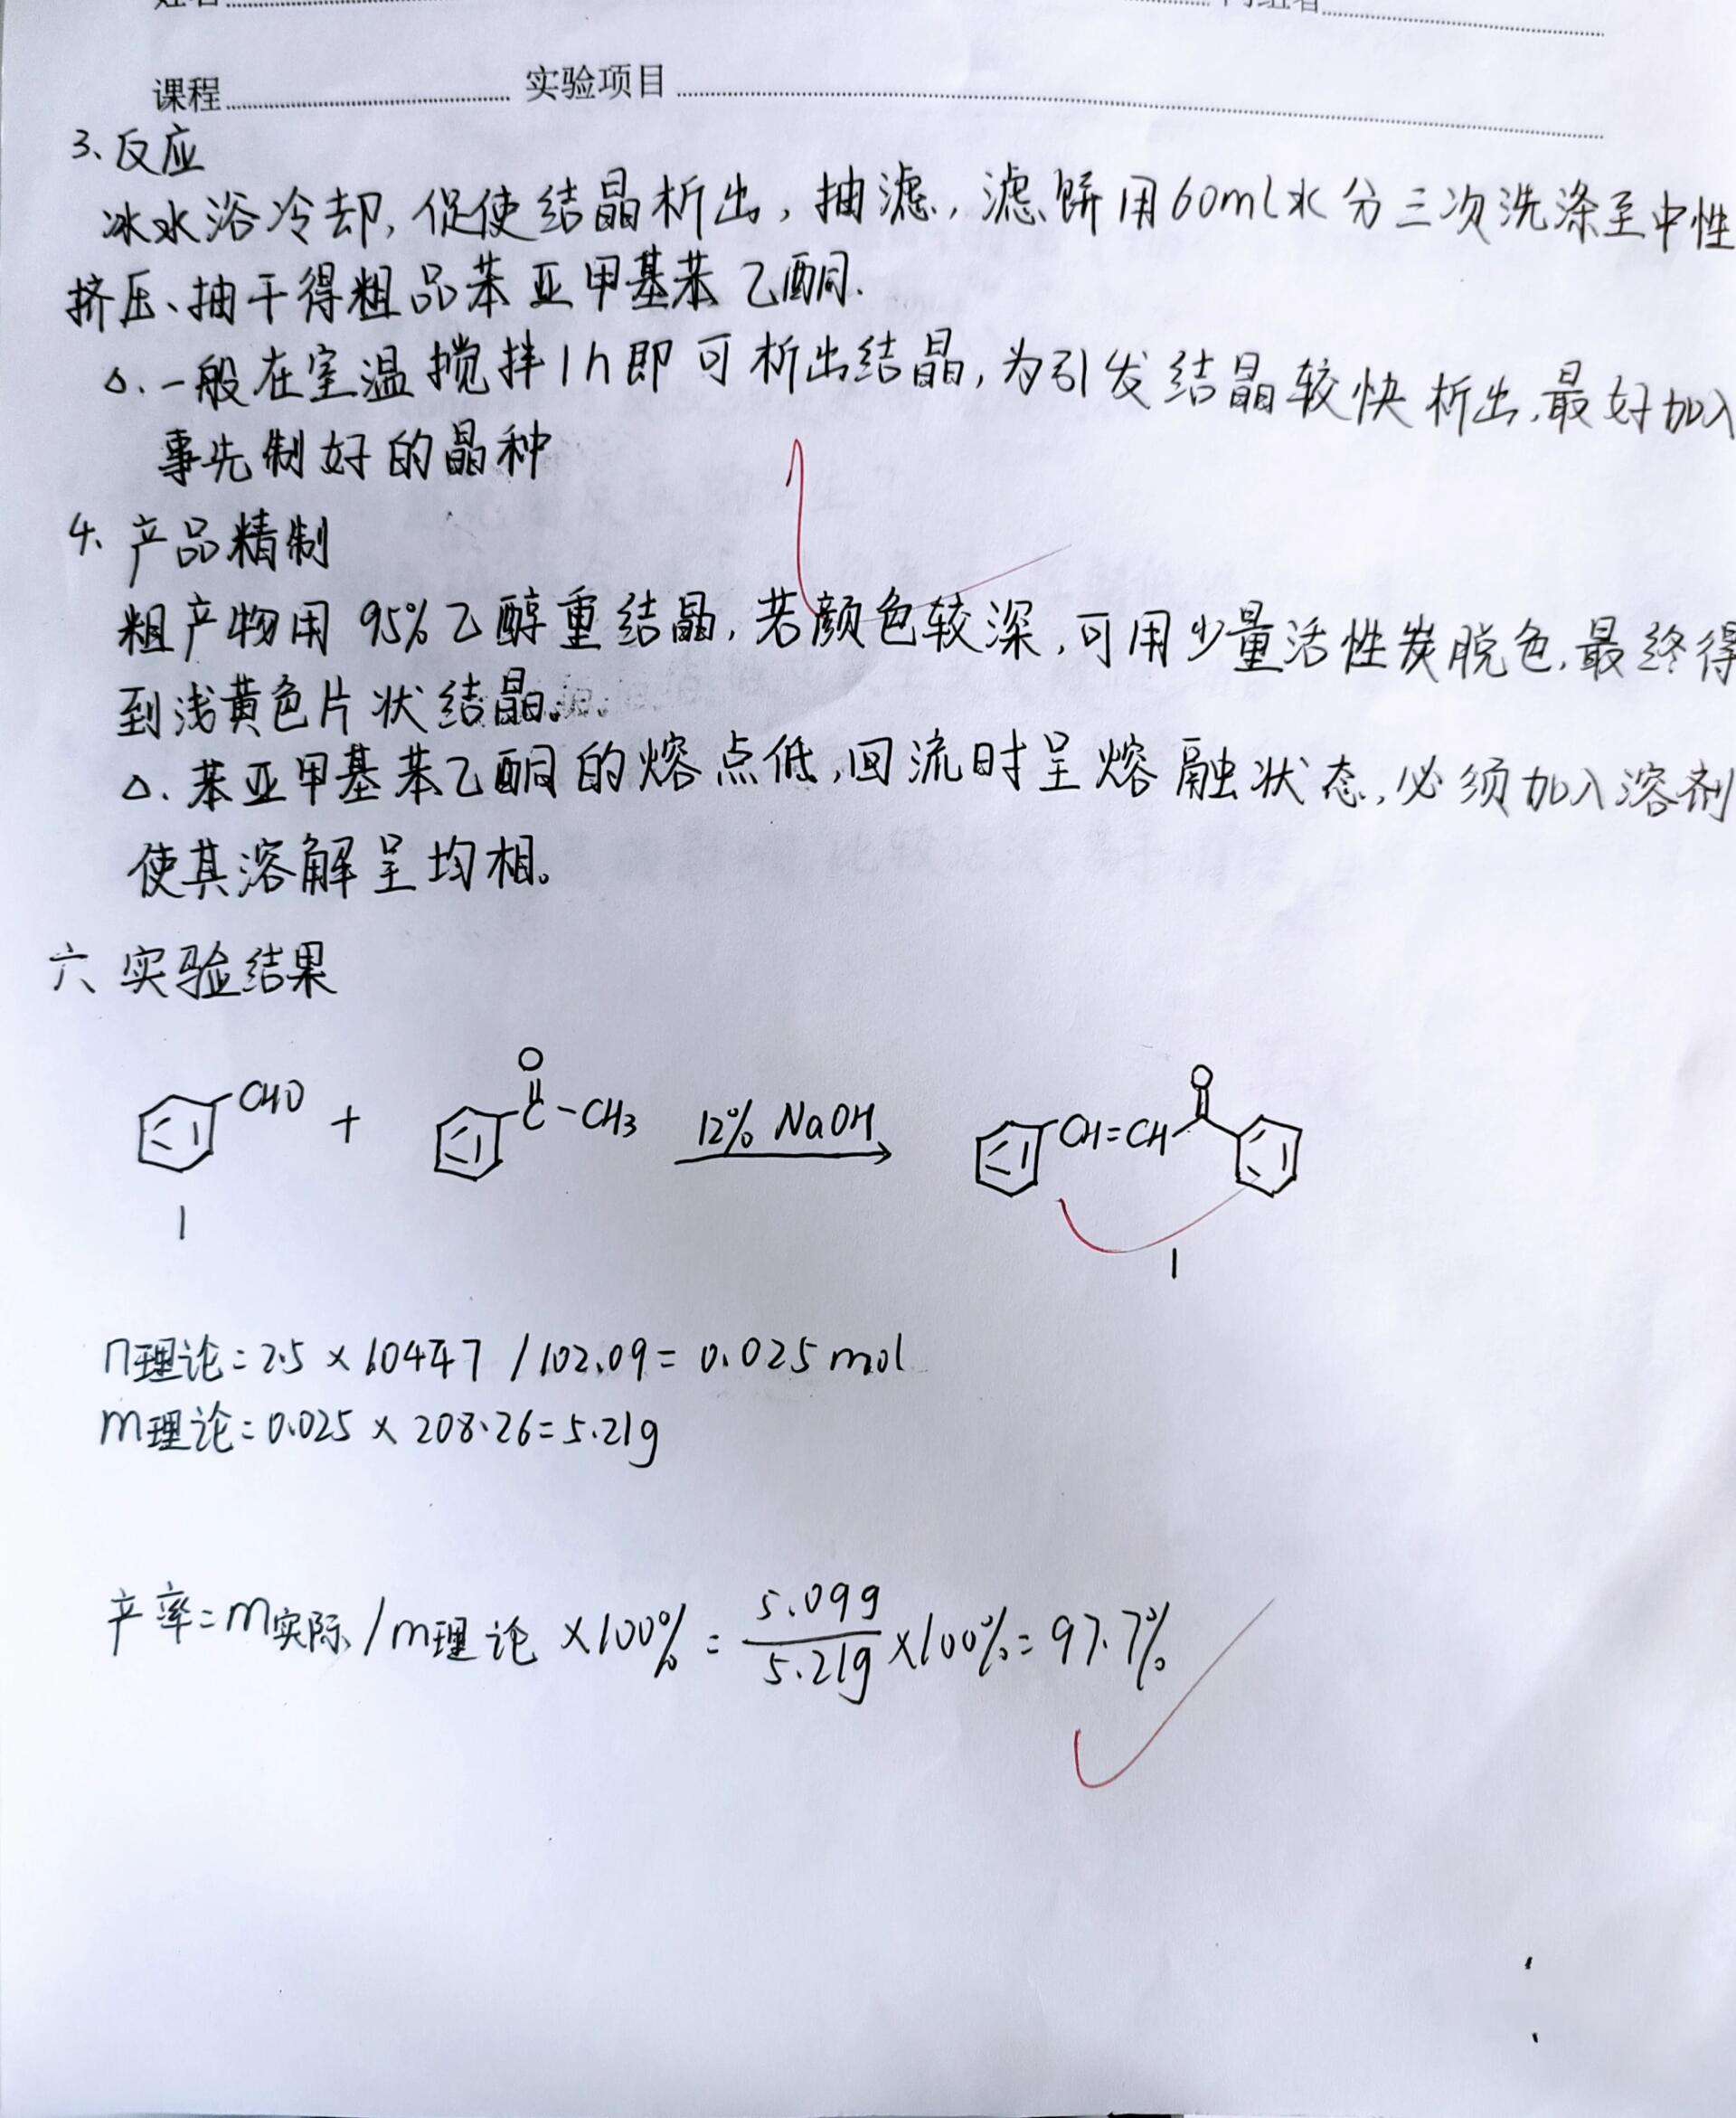 课程 实验项目
3、反应
冰水浴冷却,促使结晶析出,抽滤,滤饼用60ml水分三次洗涤至中性
挤压、抽干得粗品苯亚甲基苯乙酮.
△.一般在室温搅拌1h即可析出结晶,为引发结晶较快析出,最好加入
事先制好的晶种
4、产品精制
粗产物用95%乙醇重结晶,若颜色较深,可用少量活性炭脱色,最终得
到浅黄色片状结晶。
△.苯亚甲基苯乙酮的熔点低,回流时呈熔融状态,必须加入溶剂
使其溶解呈均相。
六、实验结果
CHO + O C-CH3 12% NaOH CH=CH O
1 1
n理论=2.5×1.0447/102.09=0.025mol
m理论=0.025×208.26=5.21g
产率=m实际/m理论×100%=5.09g/5.21g×100%=97.7%